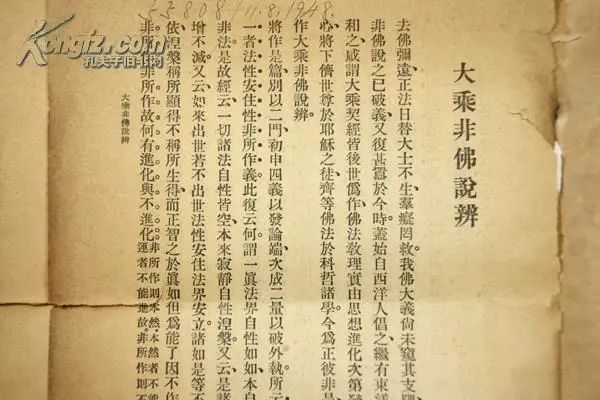 大乘非佛說辨
去佛彌遠、正法日替、大士不生、羣癡罔救、我佛大義、尙未窺其支
非佛說之已破義、又復甚囂於今時、蓋始自西洋人倡之、繼有東洋
和之、咸謂大乘契經皆後世僞作、佛法敎理實由思想進化次第發
心、將下儕世尊於耶穌之徒、齊等佛法於科哲諸學、今爲正彼非是
作大乘非佛說辨。
將作是篇、別以二門、初申四義以發論端、次成二量以破外執、所云
一者法性安住性非所作義、此復云何、謂一眞法界自性如如、本自
非法、是故經云、一切諸法自性皆空、本來寂靜、自性湼槃、又云、是諸
增不減、又云、如來出世若不出世、法性安住法界安立、諸如是等、不
依湼槃、稱所顯得、不稱所生得、而正智之於眞如、但爲能了因、不作
非所作故、何有進化與不進化。
非所作則本然、本然者不能
運者不能進故、非所作則
大乘非佛說辨
8.1948.
Kongfz.com
孔夫子旧书网